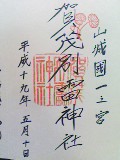 山城國一之宮
賀茂別雷神社
平成十九年五月十日